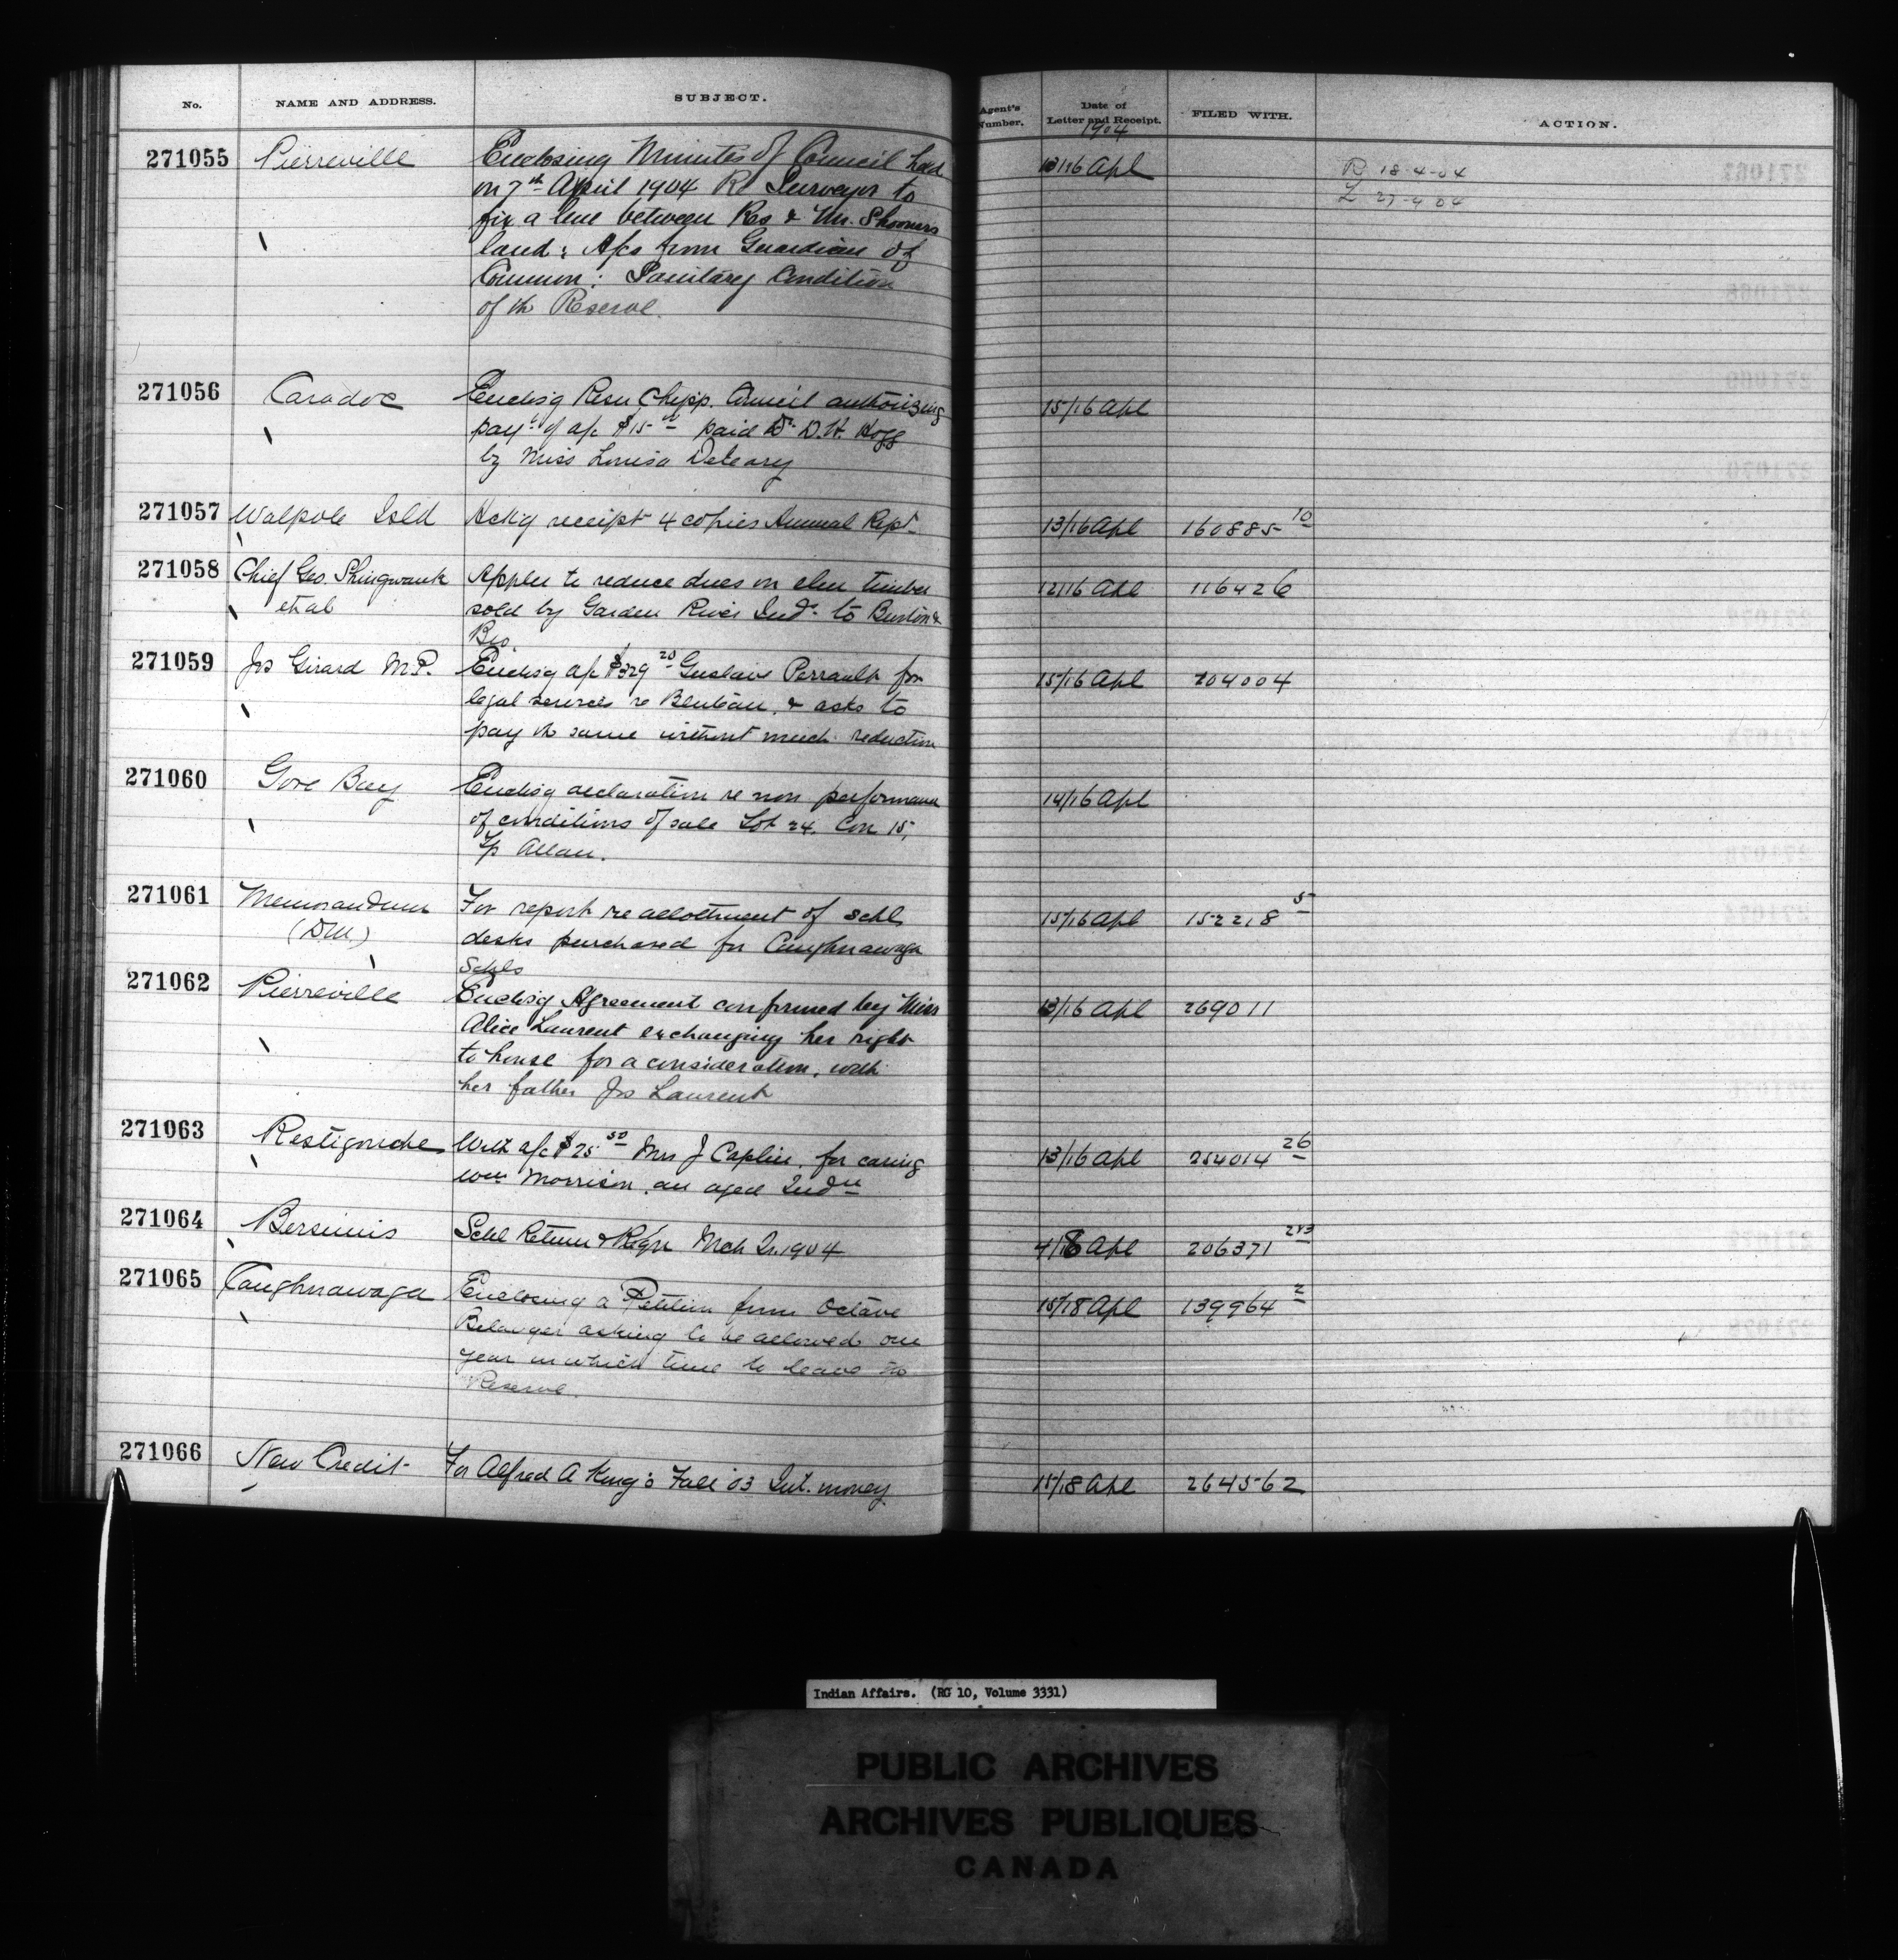 No. NAME AND ADDRESS. SUBJECT. Agent's Number. Date of Letter and Receipt. FILED WITH. ACTION.
1904
271055 Pierreville Enclosing Minutes of Council held 13/16 Apl R 18-4-04
on 7th April 1904 Re Surveyor to L 27-4-04
fix a line between Res & Mr. Shooners
land: A/cs from Guardian of
Common: Sanitary Condition
of th Reserve.
271056 Caradoc Enclos'g Resn Chipp. Council authorizing 15/16 Apl
payt of a/c $15 paid Dr. D.H. Hogg
by Miss Louisa Deleary
271057 Walpole Isld Ack'g receipt 4 copies Annual Rept 13/16 Apl 160885 10
271058 Chief Geo. Shingwauk Apples to reduce dues on elm timber 12/16 Apl 116426
et al sold by Garden River Inds to Burton &
Bro.
271059 Jos Girard M.P. Enclos'g a/c $329 20 Gustave Perrault for 15/16 Apl 204004
legal services re &  asks to
pay th same without much reduction
271060 Gore Bay Enclos'g declaration re non performance 14/16 Apl
of conditions of sale Lot 24. Con 15,
Tp Allan.
271061 Memorandum For report re allottment of Schl 15/16 Apl 152218 5
(DM) desks purchased for Caughnawaga
Schls
271062 Pierreville Enclos'g Agreement confirmed by Miss 13/16 Apl 269011
Alice Laurent exchanging her right
to house for a consideration, with
her father Jos Laurent
271063 Restigouche With a/c $25 50 Mrs J Caplin, for caring 13/16 Apl 254014 26
Wm Morrison, an aged Indn
271064 Bersimis Schl Return & Mch Qr. 1904 4/16 Apl 206371 213
271065 Caughnawaga Enclosing a Petition from Octave 15/18 Apl 139964 2
Belanger asking to be allowed one
year in which time to leave the
Reserve.
271066 New Credit For Alfred A King's Fall '03 Int. money 15/18 Apl 264562
Indian Affairs. (RG 10, Volume 3331)
PUBLIC ARCHIVES
ARCHIVES PUBLIQUES
CANADA